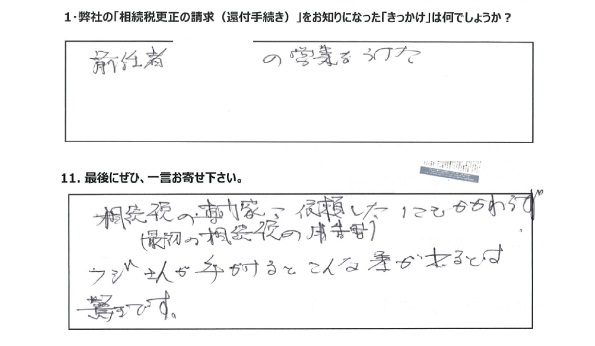 1・弊社の「相続税更正の請求（還付手続き）」をお知りになった「きっかけ」は何でしょうか？
前任者 の営業をうけた
11. 最後にぜひ、一言お寄せ下さい。
相続税の専門家に依頼したにもかかわらず
(最初の相続税の申告書)
フジさんが手がけるとこんな差が出るとは
驚きです。